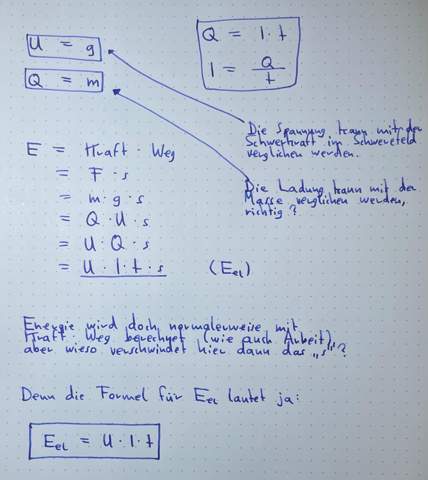 U = g
Q = m
Q = I · t
I = Q / t
Die Spannung kann mit der
Schwerkraft im Schwerefeld
verglichen werden.
Die Ladung kann mit der
Masse verglichen werden,
richtig?
E = Kraft · Weg
= F · s
= m · g · s
= Q · U · s
= U · Q · s
= U · I · t · s (E_el)
Energie wird doch normalerweise mit
Kraft · Weg berechnet (wie auch Arbeit),
aber wieso verschwindet hier dann das „s"?
Denn die Formel für E_el lautet ja:
E_el = U · I · t